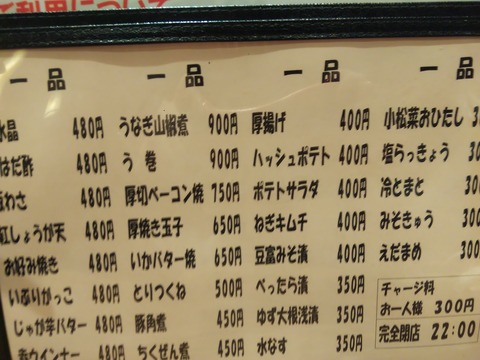 ご利用について
一品 一品 一品 一品
水晶 480円 うなぎ山椒煮 900円 厚揚げ 400円 小松菜おひたし
はだ酢 480円 う巻 900円 ハッシュポテト 400円 塩らっきょう
わさ 480円 厚切ベーコン焼 750円 ポテトサラダ 400円 冷とまと
紅しょうが天 480円 厚焼き玉子 650円 ねぎキムチ 400円 みそきゅう
お好み焼き 480円 いかバター焼 650円 豆富みそ漬 400円 えだまめ
いぶりがっこ 480円 とりつくね 500円 べったら漬 350円 チャージ料
じゃが芋バター 480円 豚角煮 450円 ゆず大根浅漬 350円 お一人様 300円
赤ウインナー 480円 ちくぜん煮 450円 水なす 350円 完全閉店 22:00